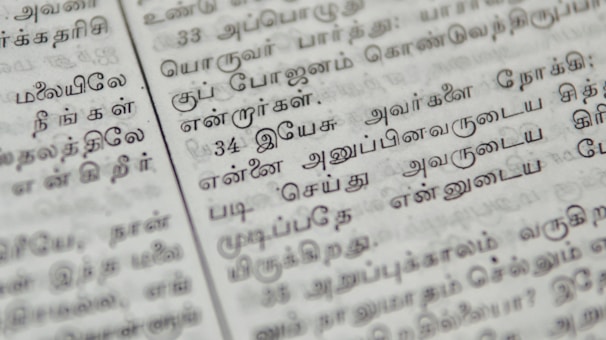 அவனை
ர்க்கதரிசி
மலையிலே
நீங்கள்
ஸ்தலத்திலே
என்கிறீர்
நான்
இந்த மலை
உண்டு
33 அப்பொழுது
யொருவர் பார்த்து: யாரா
குப் போஜனம் கொண்டுவந்திருப்பா
என்றார்கள்.
34 இயேசு அவர்களை நோக்கி:
என்னை அனுப்பினவருடைய சித்த
படி செய்து அவருடைய கிரி
முடிப்பதே என்னுடைய போ
யிருக்கிறது.
35 அறுப்புக்காலம் வருகிற
னும் நாலுமாதம் செல்லும் எ
றதில்லையா? இதோ